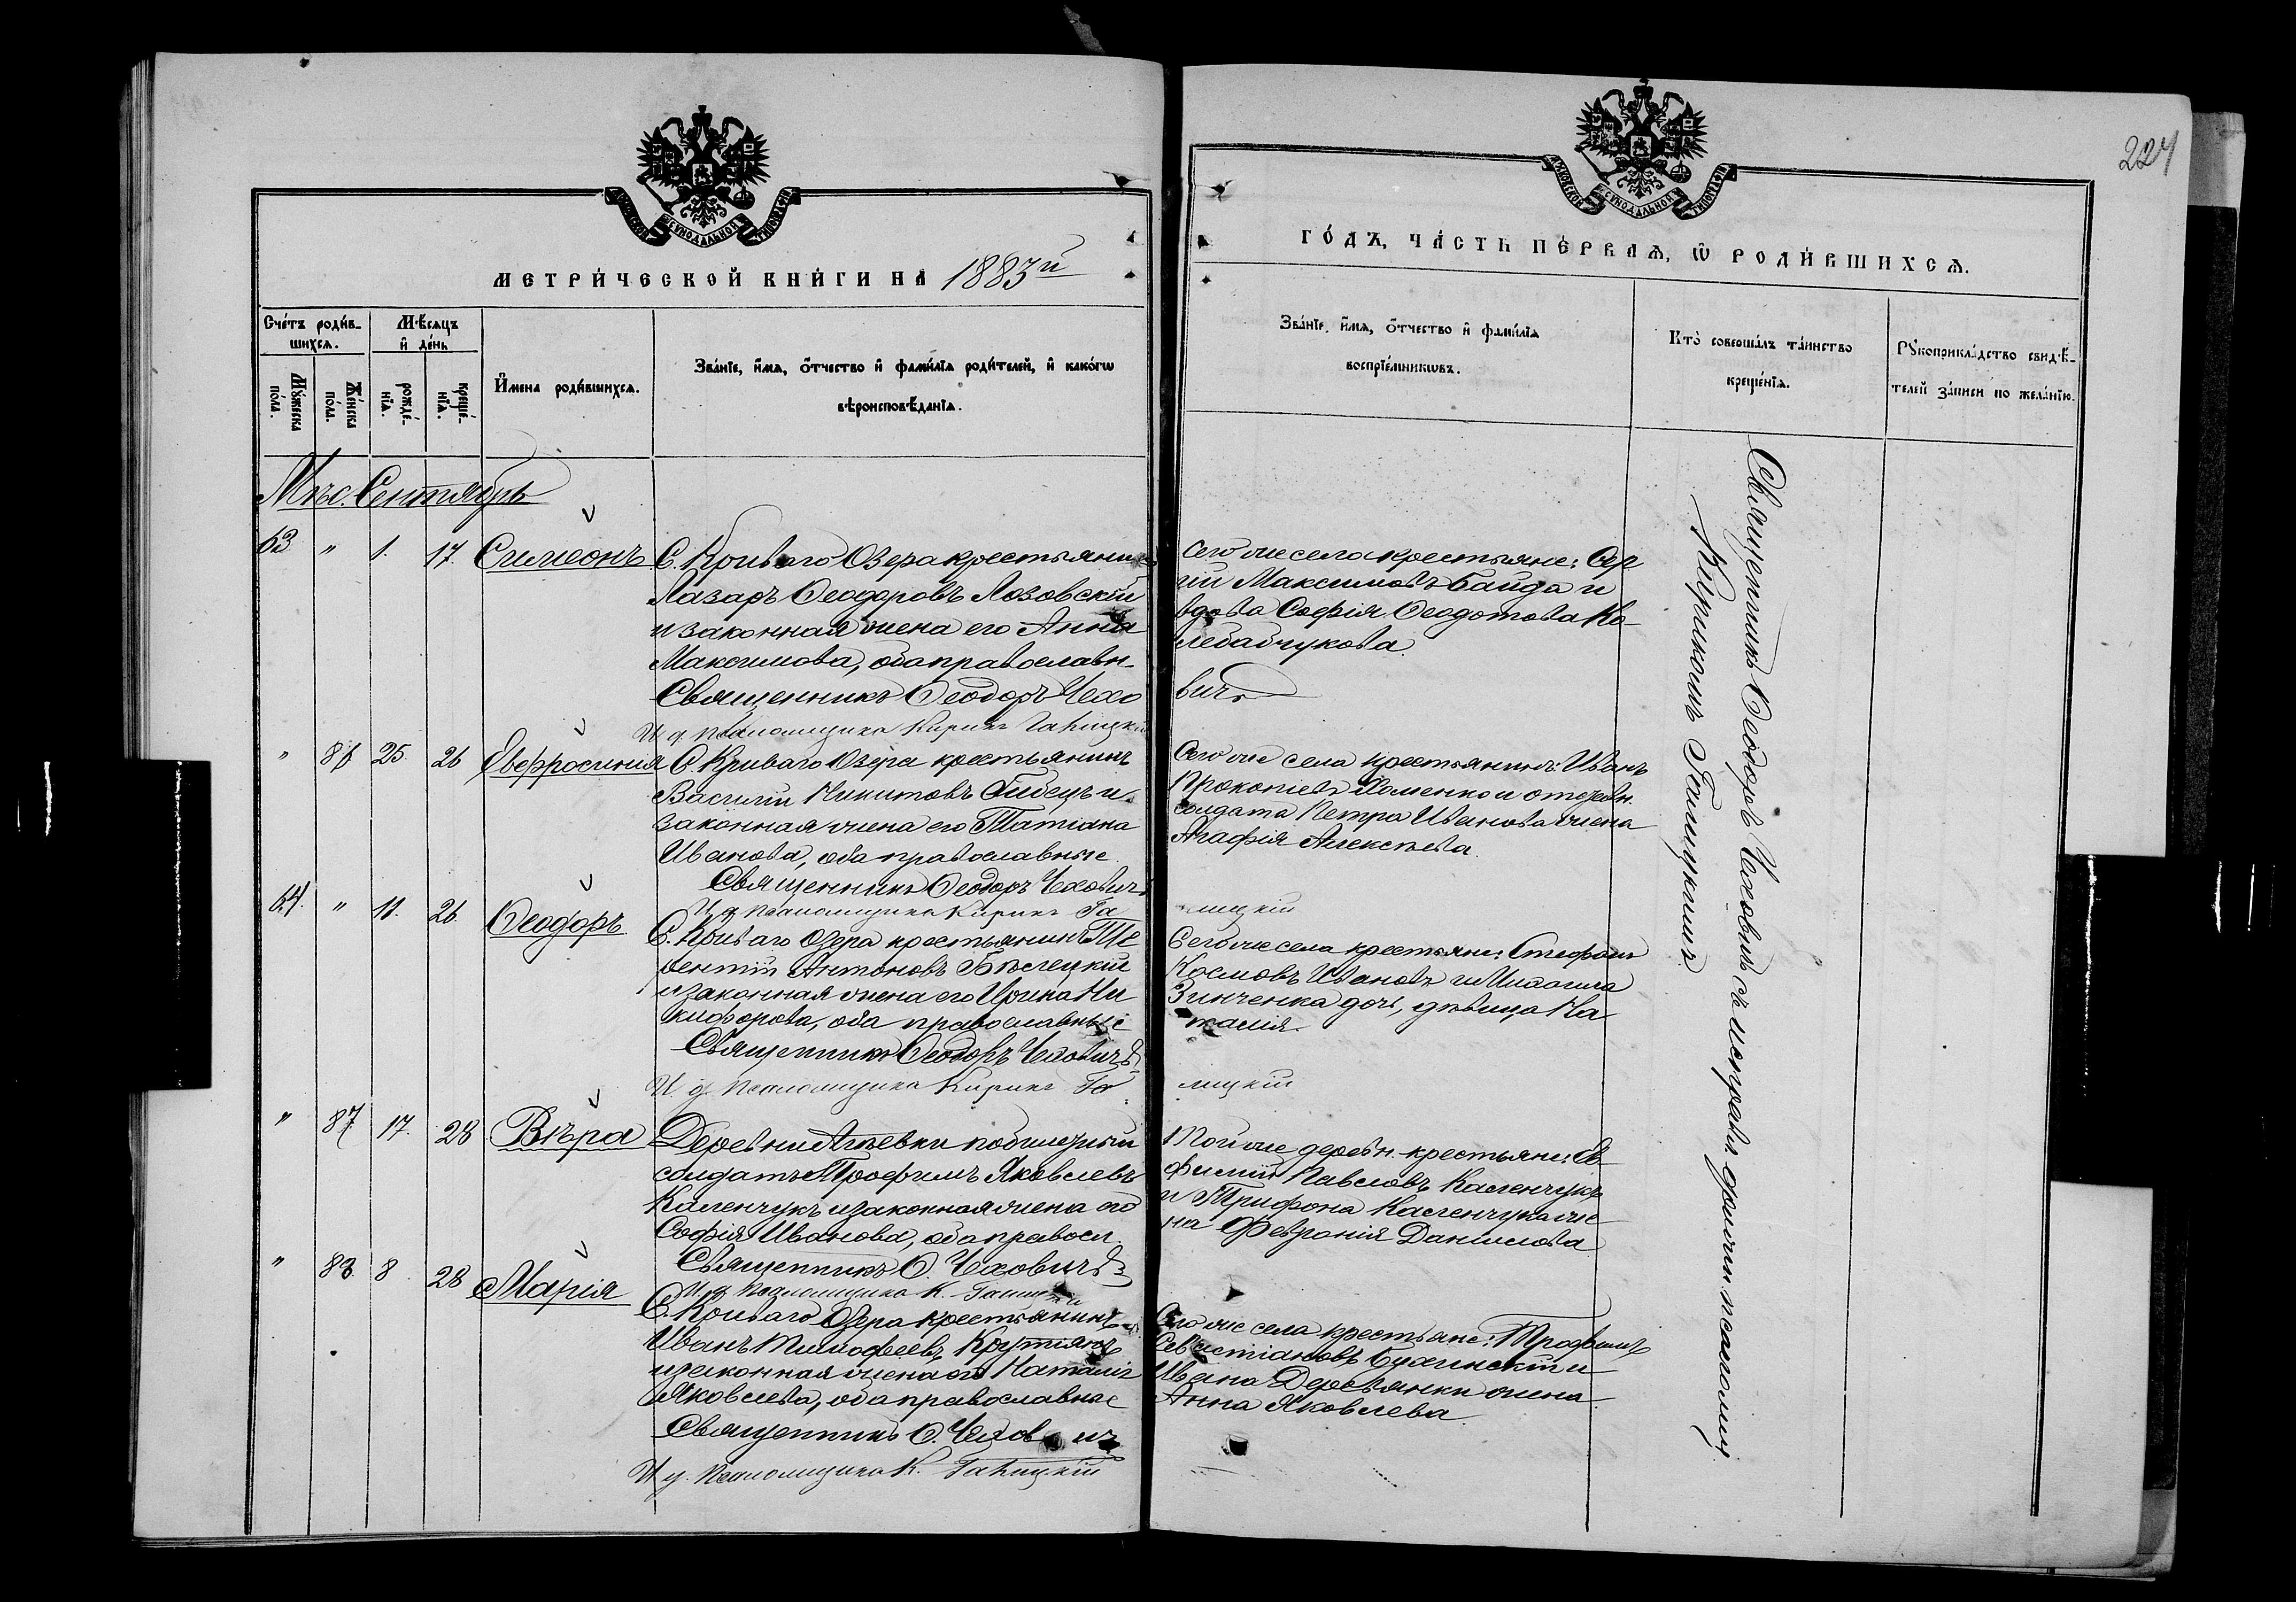 224
МЕТРИ́ЧЕСКОЙ КНИ́ГИ НА 1883й
ГО́ДЪ, ЧА́СТЬ ПЕ́РВАѦ, Ѡ҆ РОДИ́ВШИХСѦ.
Сче́тъ роди́в-
шихсѧ.
Мѣ́сѧцъ
и҆ де́нь
Мꙋ́жеска
по́ла.
Же́нска
по́ла.
рожде́-
нїѧ.
креще́-
нїѧ.
И҆мена роди́вшихсѧ.
Зва́нїе, и҆́мѧ, ѻ҆́тчество и҆ фами́лїѧ роди́телей, и҆ како́гѡ
вѣроисповѣ́данїѧ.
Зва́нїе, и҆́мѧ, ѻ҆́тчество и҆ фами́лїѧ
воспрїе́мникѡвъ.
Кто̀ соверша́лъ та́инство
креще́нїѧ.
Рꙋкоприкла́дство свидѣ́-
телей за́писи по жела́нїю.
Мѣс. Сентябрь
63 " 1. 17. Симеонъ
С. Криваго Озера крестьянинъ
Лазарь Ѳеодоровъ Лозовскій
и законная жена его Анна
Максимова, оба православн.
Священникъ Ѳеодоръ Чехо
вичъ
И. д. псаломщика Кирикъ Галицкій
Сего же села крестьяне: Сер
гій Максимовъ Байда и
вдова Софія Ѳеодотова
" 86 25. 26 Евфросинія
С. Криваго Озера крестьянинъ
Василій Никитовъ и
законная жена его Татіана
Иванова, оба православные.
Священникъ Ѳеодоръ Чеховичъ
И. д. псаломщика Кирикъ Га
лицкій
Сего же села крестьянинъ: Иванъ
Прокопіевъ Хоменко и
солдата Петра Иванова жена
Агафія Алексѣева.
64. " 11. 26. Ѳеодоръ
С. Криваго Озера крестьянинъ Те
рентій Антоновъ Бѣлецкій
и законная жена его Ирина Ни
кифорова, оба православные
Священникъ Ѳеодоръ Чеховичъ
И. д. псаломщика Кирикъ Га
лицкій
Сего же села крестьяне: Стефанъ
Космовъ Ивановъ и
Зинченка дочь, дѣвица На
талія.
" 87 17. 28 Вѣра
Деревни
солдатъ Трофимъ Яковлевъ
Каленчукъ и законная жена его
Софія Иванова, оба правосл.
Священникъ Ѳ. Чеховичъ
И. д. псаломщика К. Галицкій
Той же деревн. крестьяне: Ев
фимій Павловъ Каленчукъ
и Трифона Каленчука же
на Февронія Данилова
" 88 8 28 Марія
С. Криваго Озера крестьянинъ
Иванъ Тимофеевъ
и законная жена его Наталія
Яковлева, оба православные
Священникъ Ѳ. Чеховичъ
И. д. псаломщика К. Галицкій
Сего же села крестьяне: Трофимъ
Севастіановъ и
Ивана Деревянки жена
Анна Яковлева.
Священникъ Ѳеодоръ Чеховичъ съ исправл. должн. псаломщ.
Кирикомъ Галицкимъ.